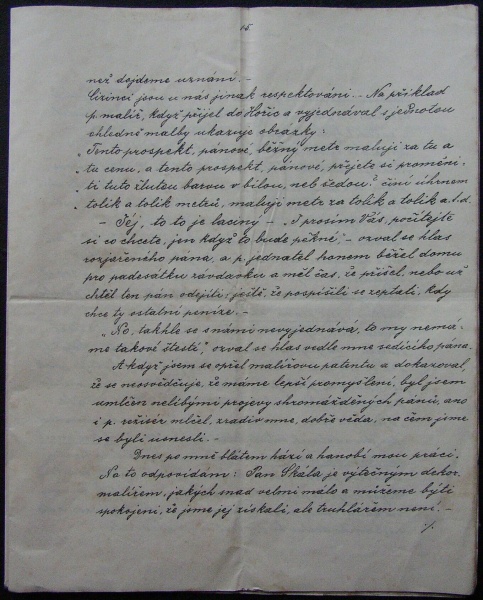 15.
než dojdeme uznání.-
Cizinci jsou u nás jinak respektováni.- Na příklad
p. malíř, když přijel do Hořic a vyjednával s jednotou
ohledně malby ukazuje obrázky:
"Tento prospekt, pánové, běžný metr maluji za tu a
tu cenu, a tento prospekt, pánové, přejete si promění-
ti tuto žlutou barvu v bílou, neb šedou? činí úhrnem
tolik a tolik metrů, maluji metr za tolik a tolik a.t.d.
- Jéj, to to je laciný - "I prosím Vás, počítejte
si co chcete, jen když to bude pěkné," - ozval se hlas
rozjařeného pána, a p. jednatel honem běžel domů
pro padesátku závdavku a měl čas, že přišel, nebo už
chtěl ten pán odejíti; ještě, že pospíšili se zeptati, kdy
chce ty ostatní peníze.-
"No, takhle se s námi nevyjednává, to my nemá-
me takové štěstí," ozval se hlas vedle mne sedícího pána.
A když jsem se opřel malířovu patentu a dokazoval,
že se neosvědčuje, že máme lepší promyšlení, byl jsem
umlčen nelibými projevy shromážděných pánů, ano
i p. režisér mlčel, zradiv mne, dobře věda, na čem jsme
se byli usnesli.-
Dnes po mně blátem hází a hanobí mou práci.
Na to odpovídám: Pan Skála je výtečným dekor.
malířem, jakých snad velmi málo a můžeme býti
spokojeni, že jsme jej získali, ale truhlářem není.-
./.